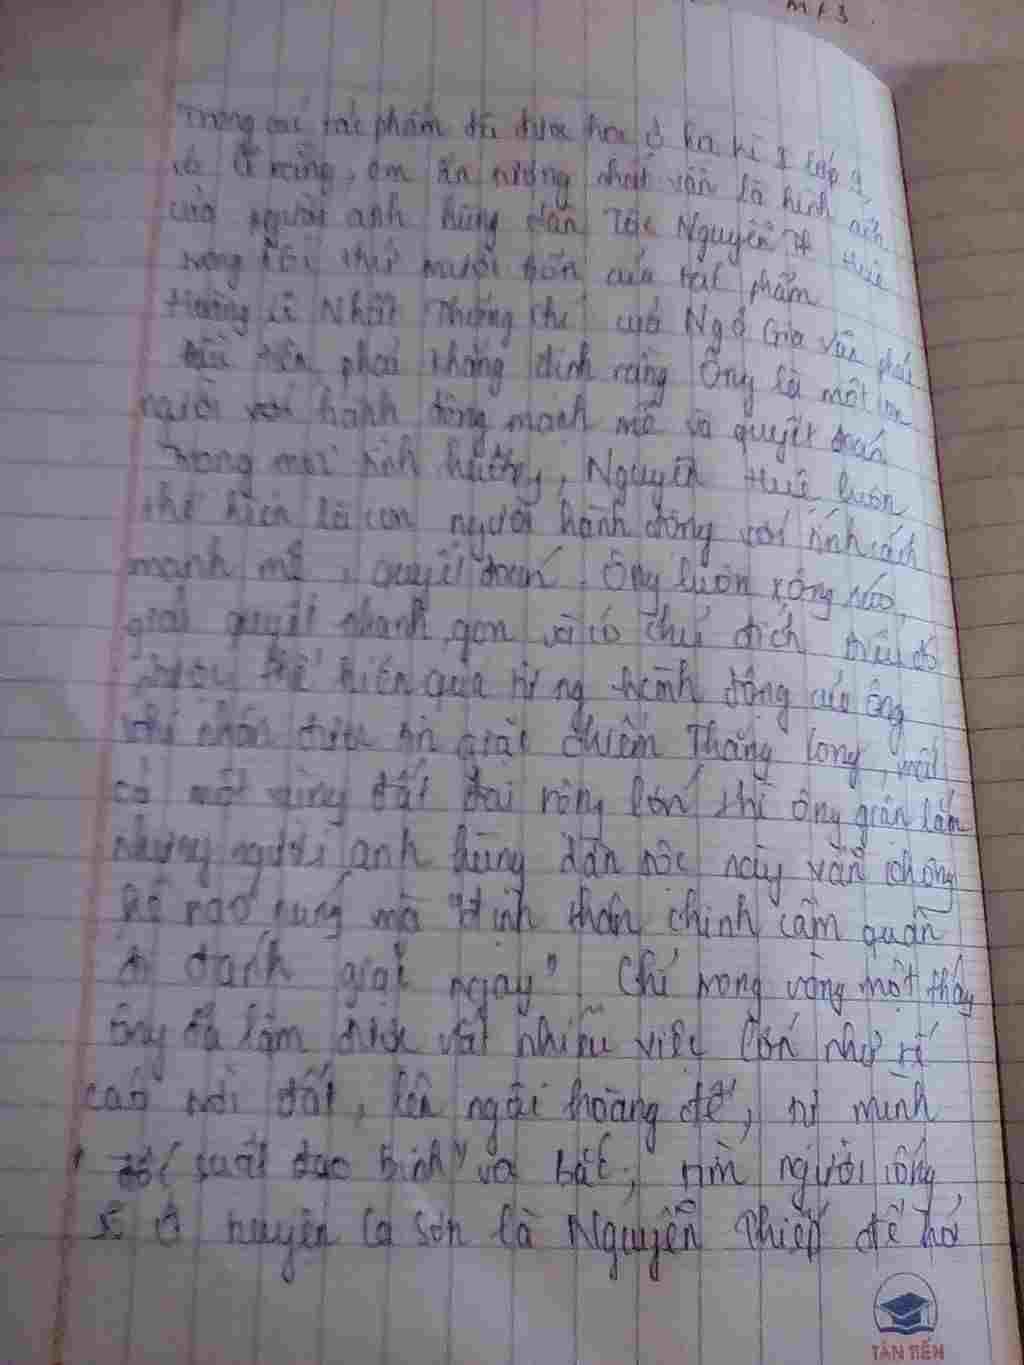 M t 3
Trong các tác phẩm đã được học ở học kì I lớp 9
có lẽ rằng, em ấn tượng nhất vẫn là hình ảnh
của người anh hùng dân tộc Nguyễn Huệ
trong hồi thứ mười bốn của tác phẩm
Hoàng Lê Nhất Thống chí của Ngô Gia Văn phái
Đầu tiên phải khẳng định rằng Ông là một con
người với hành động mạnh mẽ và quyết đoán
Trong mọi tình huống, Nguyễn Huệ luôn
thể hiện là con người hành động với tính cách
mạnh mẽ, quyết đoán. Ông luôn xông xáo,
giải quyết nhanh gọn và có chủ đích điều đó
được thể hiện qua từng hành động của ông
khi nhận được tin giặc chiếm Thăng Long, mất
cả một vùng đất đai rộng lớn thì ông giận lắm
nhưng người anh hùng dân tộc này vẫn chẳng
hề nao núng mà "định thân chinh cầm quân
đi đánh giặc ngay". Chỉ trong vòng một tháng
ông đã làm được rất nhiều việc lớn như tế
cáo trời đất, lên ngôi hoàng đế, tự mình
"đốc suất đại binh" ra bắc, tìm người cống
sĩ ở huyện La Sơn là Nguyễn Thiếp để hỏi
TÂN TIẾN